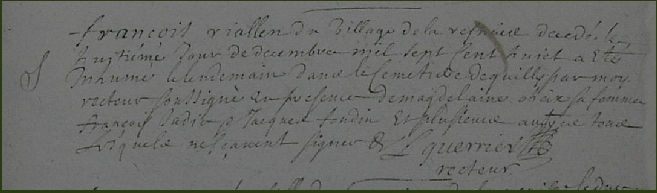 françois riallen du village de la resniere decedé le
huitiéme jour de decembre mil sept cent huict a eté
inhumé le lendemain dans le semetiere de quilly par moy
recteur soussigné en presence de magdelaine sa femme
françois jacques foudin et plusieurs autres tous
lesquels ne sçavent signer & L guerrier
recteur